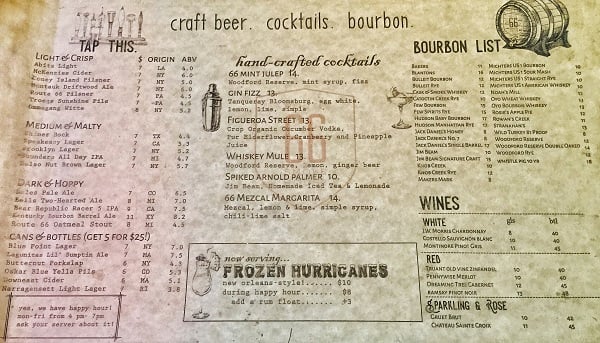 craft beer. cocktails. bourbon.
TAP THIS. $ ORIGIN ABV
Light & Crisp
Abita Light 7 LA 4.0
McKenzies Cider 7 NY 5.0
Coney Island Pilsner 7 NY 5.0
Montauk Driftwood Ale 7 NY 6.0
Route 66 Lager 7 PA 4.5
Troegs Sunshine Pils 7 PA 4.5
Ommegang Witte 8 NY 5.2
Medium & Malty
Shiner Bock 7 TX 4.4
Speakeasy Lager 7 CA 5.3
Brooklyn Lager 7 NY 5.2
Founders All Day IPA 7 MI 4.7
Kelso Nut Brown Lager 7 NY 5.7
Dark & Hoppy
Coles Pale Ale 7 CO 6.5
Bells Two-Hearted Ale 8 MI 7.0
Bear Republic Racer 5 IPA 9 CA 7.5
Kentucky Bourbon Barrel Ale 11 KY 8.2
Route 66 Oatmeal Stout 8 MI 4.5
Cans & Bottles (Get 5 for $25!)
Blue Point Lager 7 NY 7.0
Lagunitas Lil' Sumptin Ale 7 MA 7.5
Butternut Porkslap 7 NY 4.5
Oskar Blue Yella Pils 6 CO 5.3
Downeast Cider 6 MA 5.1
Narragansett Light Lager 7 RI 3.8
yes, we have happy hour!
mon-fri from 4 pm- 7pm
ask your server about it!
hand-crafted cocktails
66 Mint Julep 14.
Woodford Reserve, mint syrup, fizz
Gin Fizz 13.
Tanqueray Bloomsburg, egg white,
lemon, lime, simple
Figueroa Street 13.
Crop Organic Cucumber Vodka,
Pur Elderflower, Cranberry and Pineapple
Juice
Whiskey Mule 13.
Woodford Reserve, lemon, ginger beer
Spiked Arnold Palmer 10.
Jim Beam, Homemade Iced Tea & Lemonade
66 Mezcal Margarita 14.
Mezcal, lemon & lime, simple syrup,
chili-lime salt
66
now serving...
FROZEN HURRICANES
new orleans-style!...... $10
during happy hour...... $8
add a rum float...... +3
66
BOURBON LIST
Bakers 11
Blantons 16
Bulleit Bourbon 12
Bulleit Rye 12
Car & Smokey Whiskey 13
Catoctin Creek Rye
Few Bourbon
Few Spirits Rye
Hudson Baby Bourbon
Hudson Manhattan Rye
Jack Daniels Honey
Jack Daniels
Jack Daniel's Single Barrel
Jim Beam
Jim Beam Signature Craft
Knob Creek
Knob Creek Rye
Makers Mark
Michters US1 Bourbon 10
Michters US1 Sour Mash 10
Michters US1 Straight Rye 10
Michters US1 American Whiskey 10
Noah's Mill
Oyo Whiskey
Oyo Bourbon Whiskey
Rough Rider Rye
Rowan's Creek
Stranahan's
Wild Turkey 101 Proof
Woodford Reserve
Woodford Reserve Double Oaked
Woodford Rye
Whistle Pig 10 Yr
WINES
WHITE gls btl
J.W. Morris Chardonnay 8 40
Costello Sauvignon Blanc 10 40
Montinore Pinot Gris 11 45
RED
Truant Old Vine Zinfandel 10 40
Pennywise Merlot 10 40
Dreaming Tree Cabernet 11 45
Ramsay Pinot Noir 13 48
Sparkling & Rose
Gruet Brut 10 42
Chateau Sainte Croix 11 45